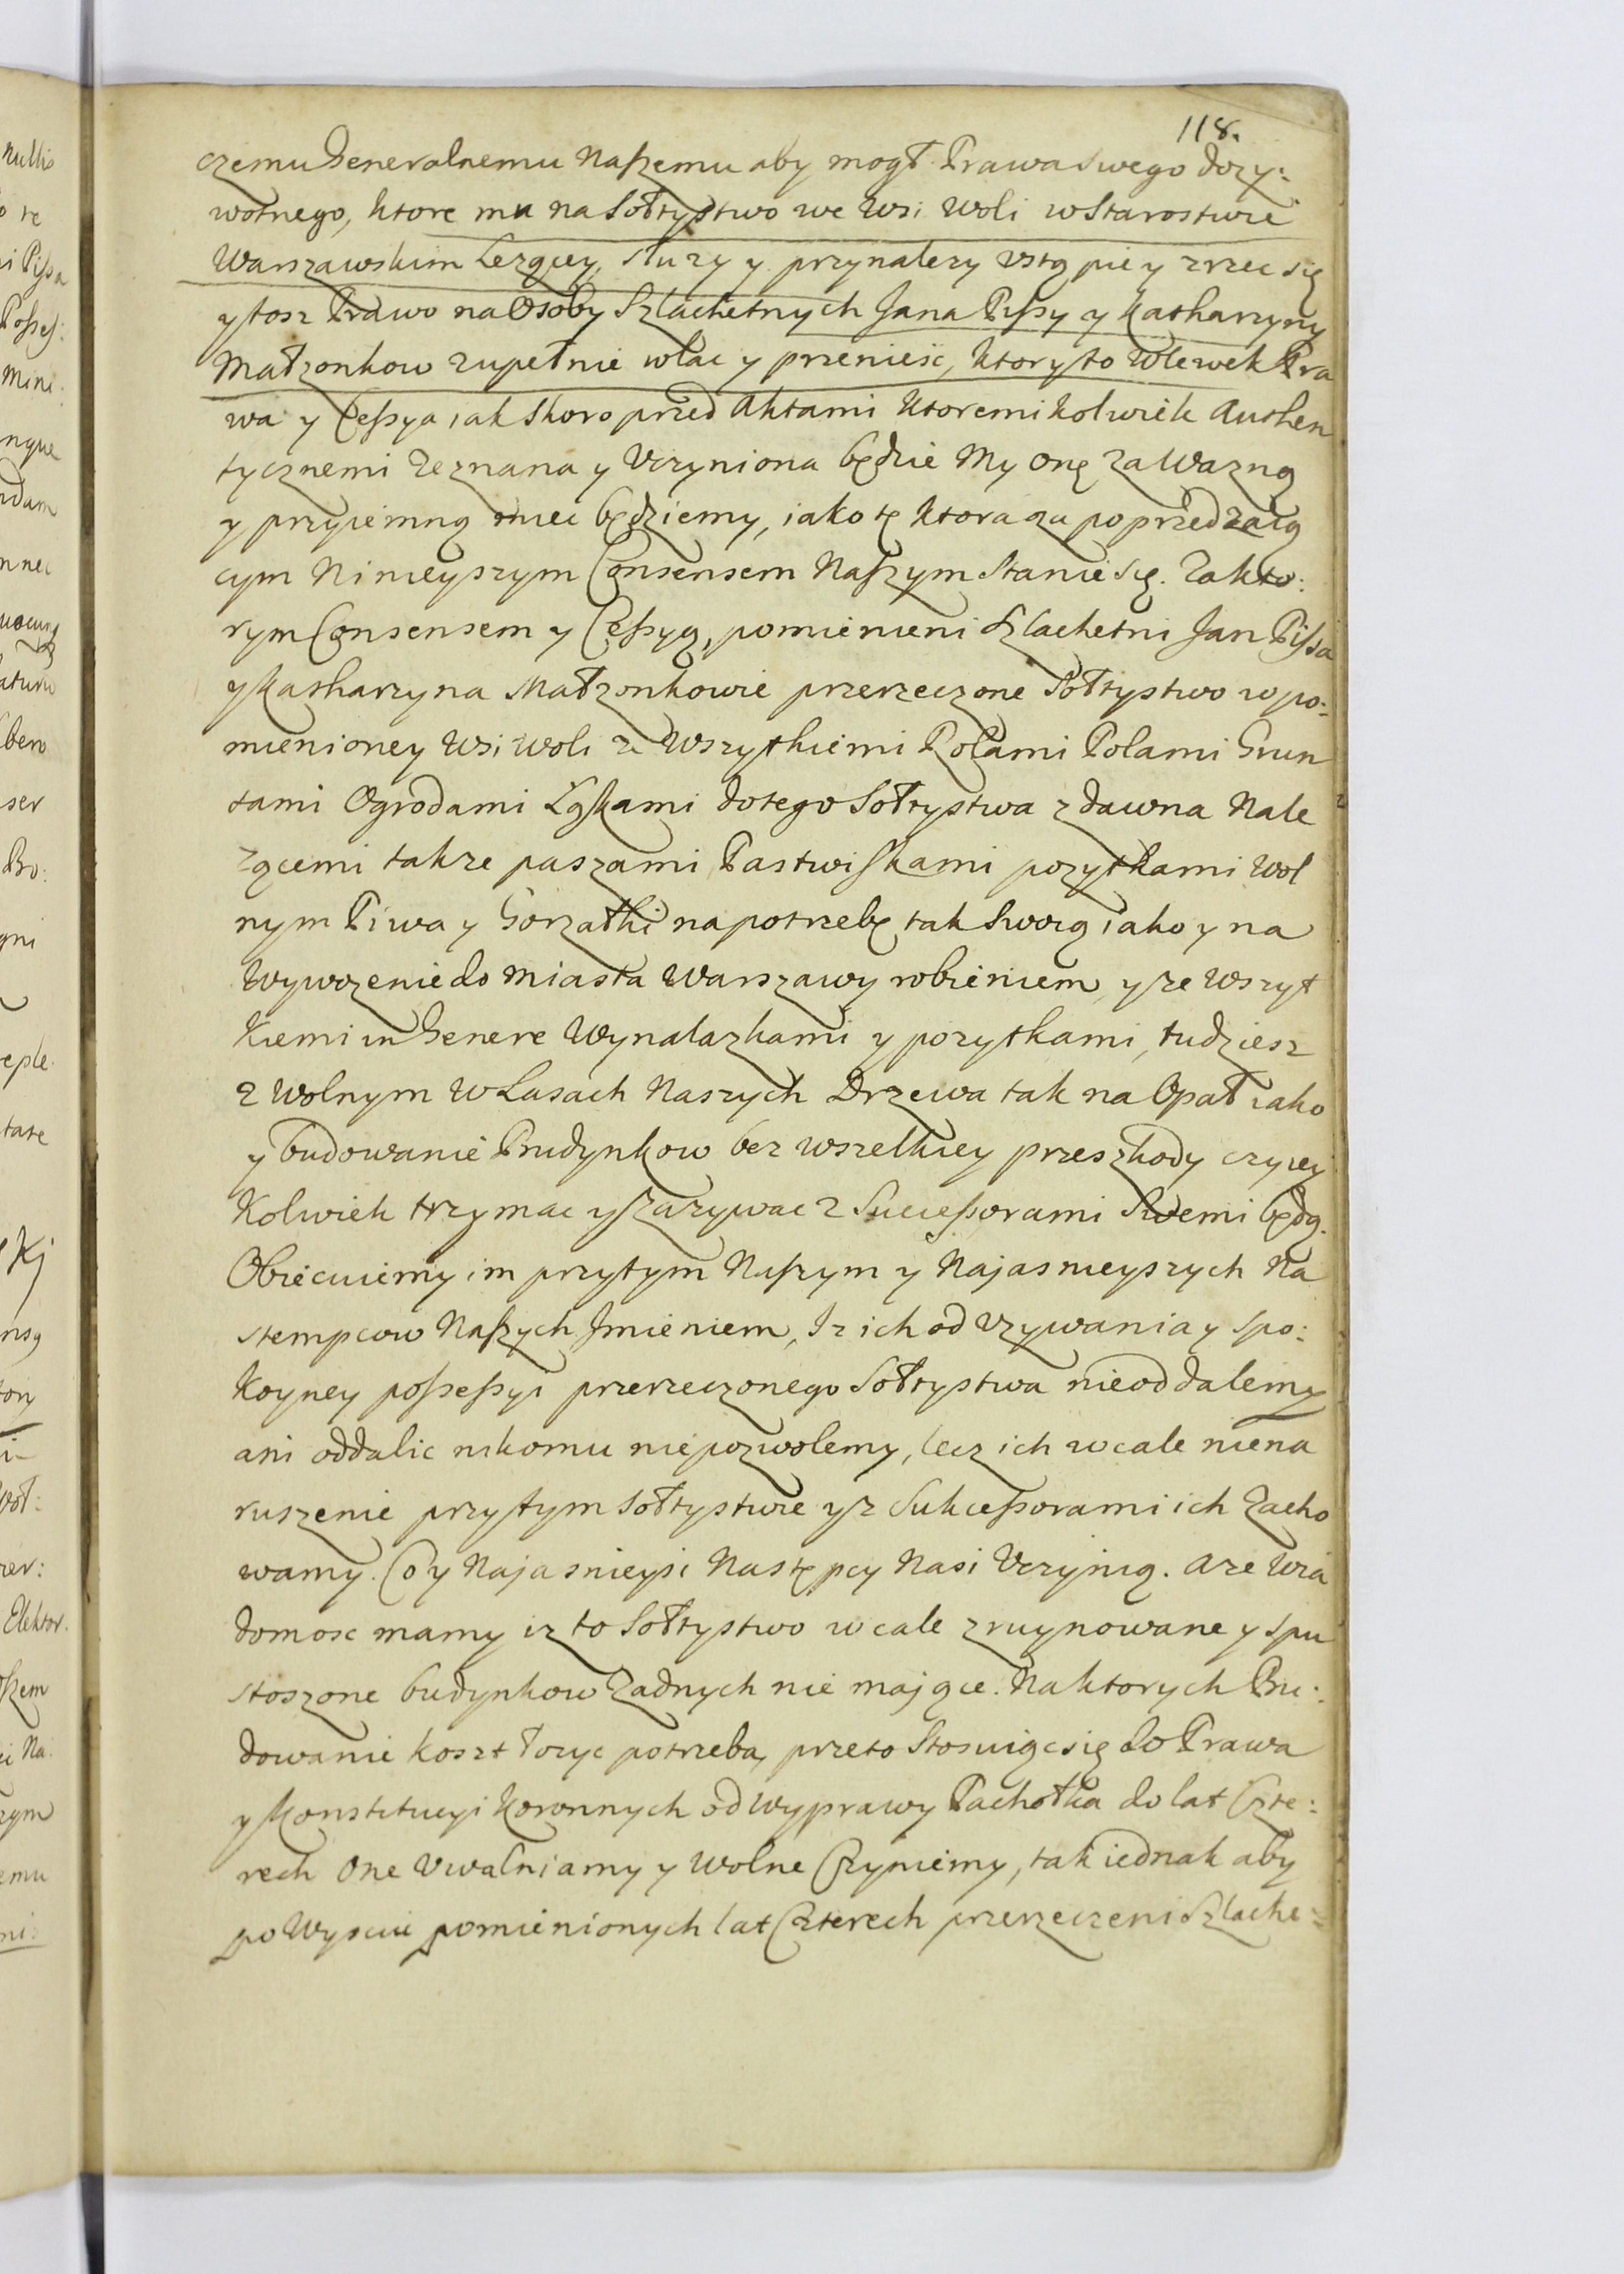 118.
czemu Generalnemu Naszemu aby mogł Prawa swego doży:
wotnego, ktore mu na Sołtystwo we Wsi Woli w Starostwie
Warszawskim Lezący, słuzy y przynalezy vstąpic y zrzec się
y tosz Prawo na Osoby Szlachetnych Jana Pissy y Katharzyny
Małzonkow zupełnie wlac y przenieść, ktory to wlewek Pra
wa y Cessya iak skoro przed Aktami ktoremikolwiek Authen
tycznemi Zeznana y Vczyniona będzie My onę za Wazną
y przyiemną miec będziemy, iako tę ktora za poprzedzaią
cym Ninieyszym Consensem Naszym Stanie się. Za kto:
rym Consensem y Cessyą, pomienieni Szlachetni Jan Pissa
y Katharzyna Małzonkowie przerzeczone Sołtystwo w po:
mienioney Wsi Woli ze Wszytkiemi Rolami Polami Grun
tami Ogrodami Łąkami do tego Sołtystwa z dawna Nale
zącemi takze paszami Pastwiskami pozytkami Wol
nym Piwa y Gorzałki na potrzebę tak Swoią iako y na
Wywozenie do Miasta Warszawy robieniem, y ze Wszyt
kiemi in Genere Wynalazkami y pozytkami, tudziesz
z Wolnym W Lasach Naszych Drzewa tak na Opał iako
y budowanie Budynkow bez wszelkiey przeszkody czyiey
kolwiek trzymac y zazywac z Successorami Swemi będą.
Obiecuiemy im przytym Naszym y Najasnieyszych Na
stempcow Naszych Jmieniem, Iz ich od Vzywania y spo:
koyney possessyi przerzeczonego Sołtystwa nieoddalemy
ani oddalic nikomu niepozwolemy, lecz ich wcale niena
ruszenie przytym Sołtystwie y z Sukcessorami ich Zacho
wamy. Co y Najasnieysi Następcy Nasi Vczynią. A ze Wia
domosc mamy iz to Sołtystwo wcale zruynowane y spu
stoszone budynkow Zadnych nie mające. Na ktorych Bu:
dowanie koszt łozyc potrzeba, przeto Stosuiąc się do Prawa
y Konstitucyi Koronnych od Wyprawy Pachołka do lat Czte:
rech One Vwalniamy y Wolne Czyniemy, tak iednak aby
po Wysciu pomienionych lat Czterech przerzeczeni Szlache: